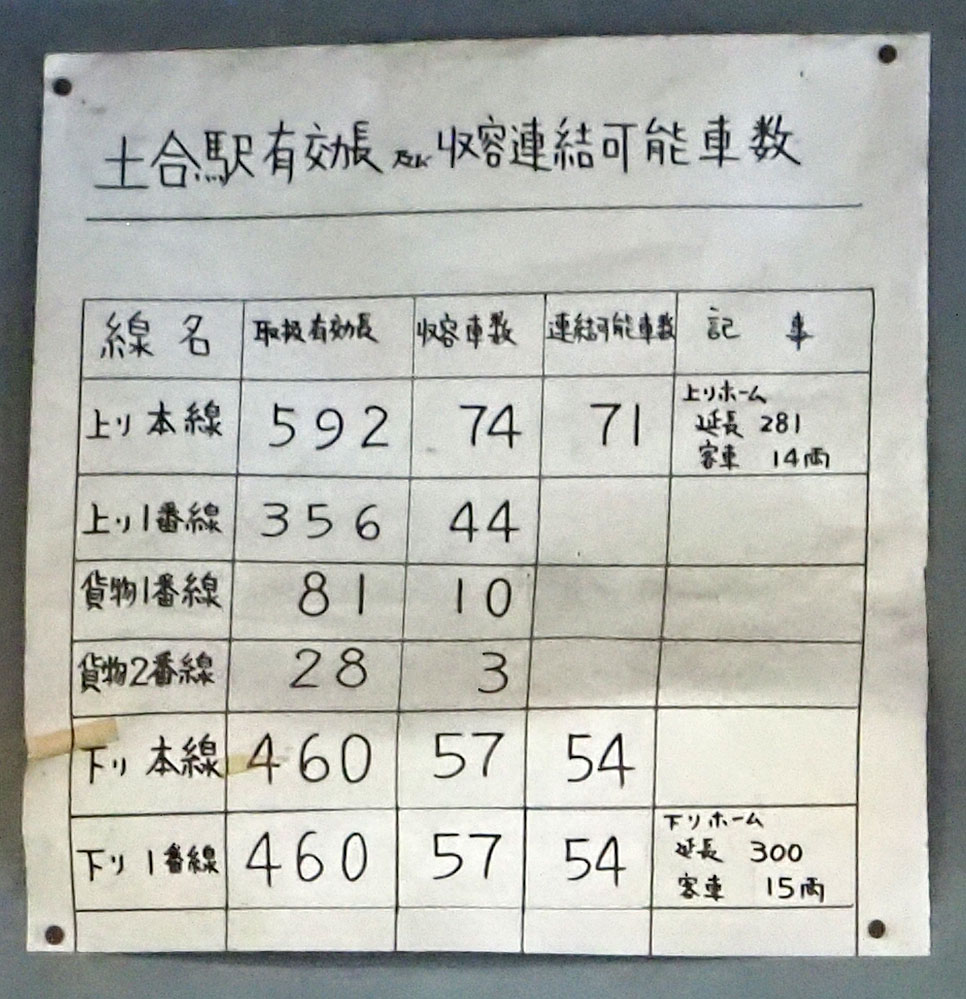 土合駅有効長及び収容連結可能車数
線名 取扱有効長 収容車数 連結可能車数 記事
上り本線 592 74 71 上りホーム
延長 281
客車 14両
上り1番線 356 44
貨物1番線 81 10
貨物2番線 28 3
下り本線 460 57 54
下り1番線 460 57 54 下りホーム
延長 300
客車 15両